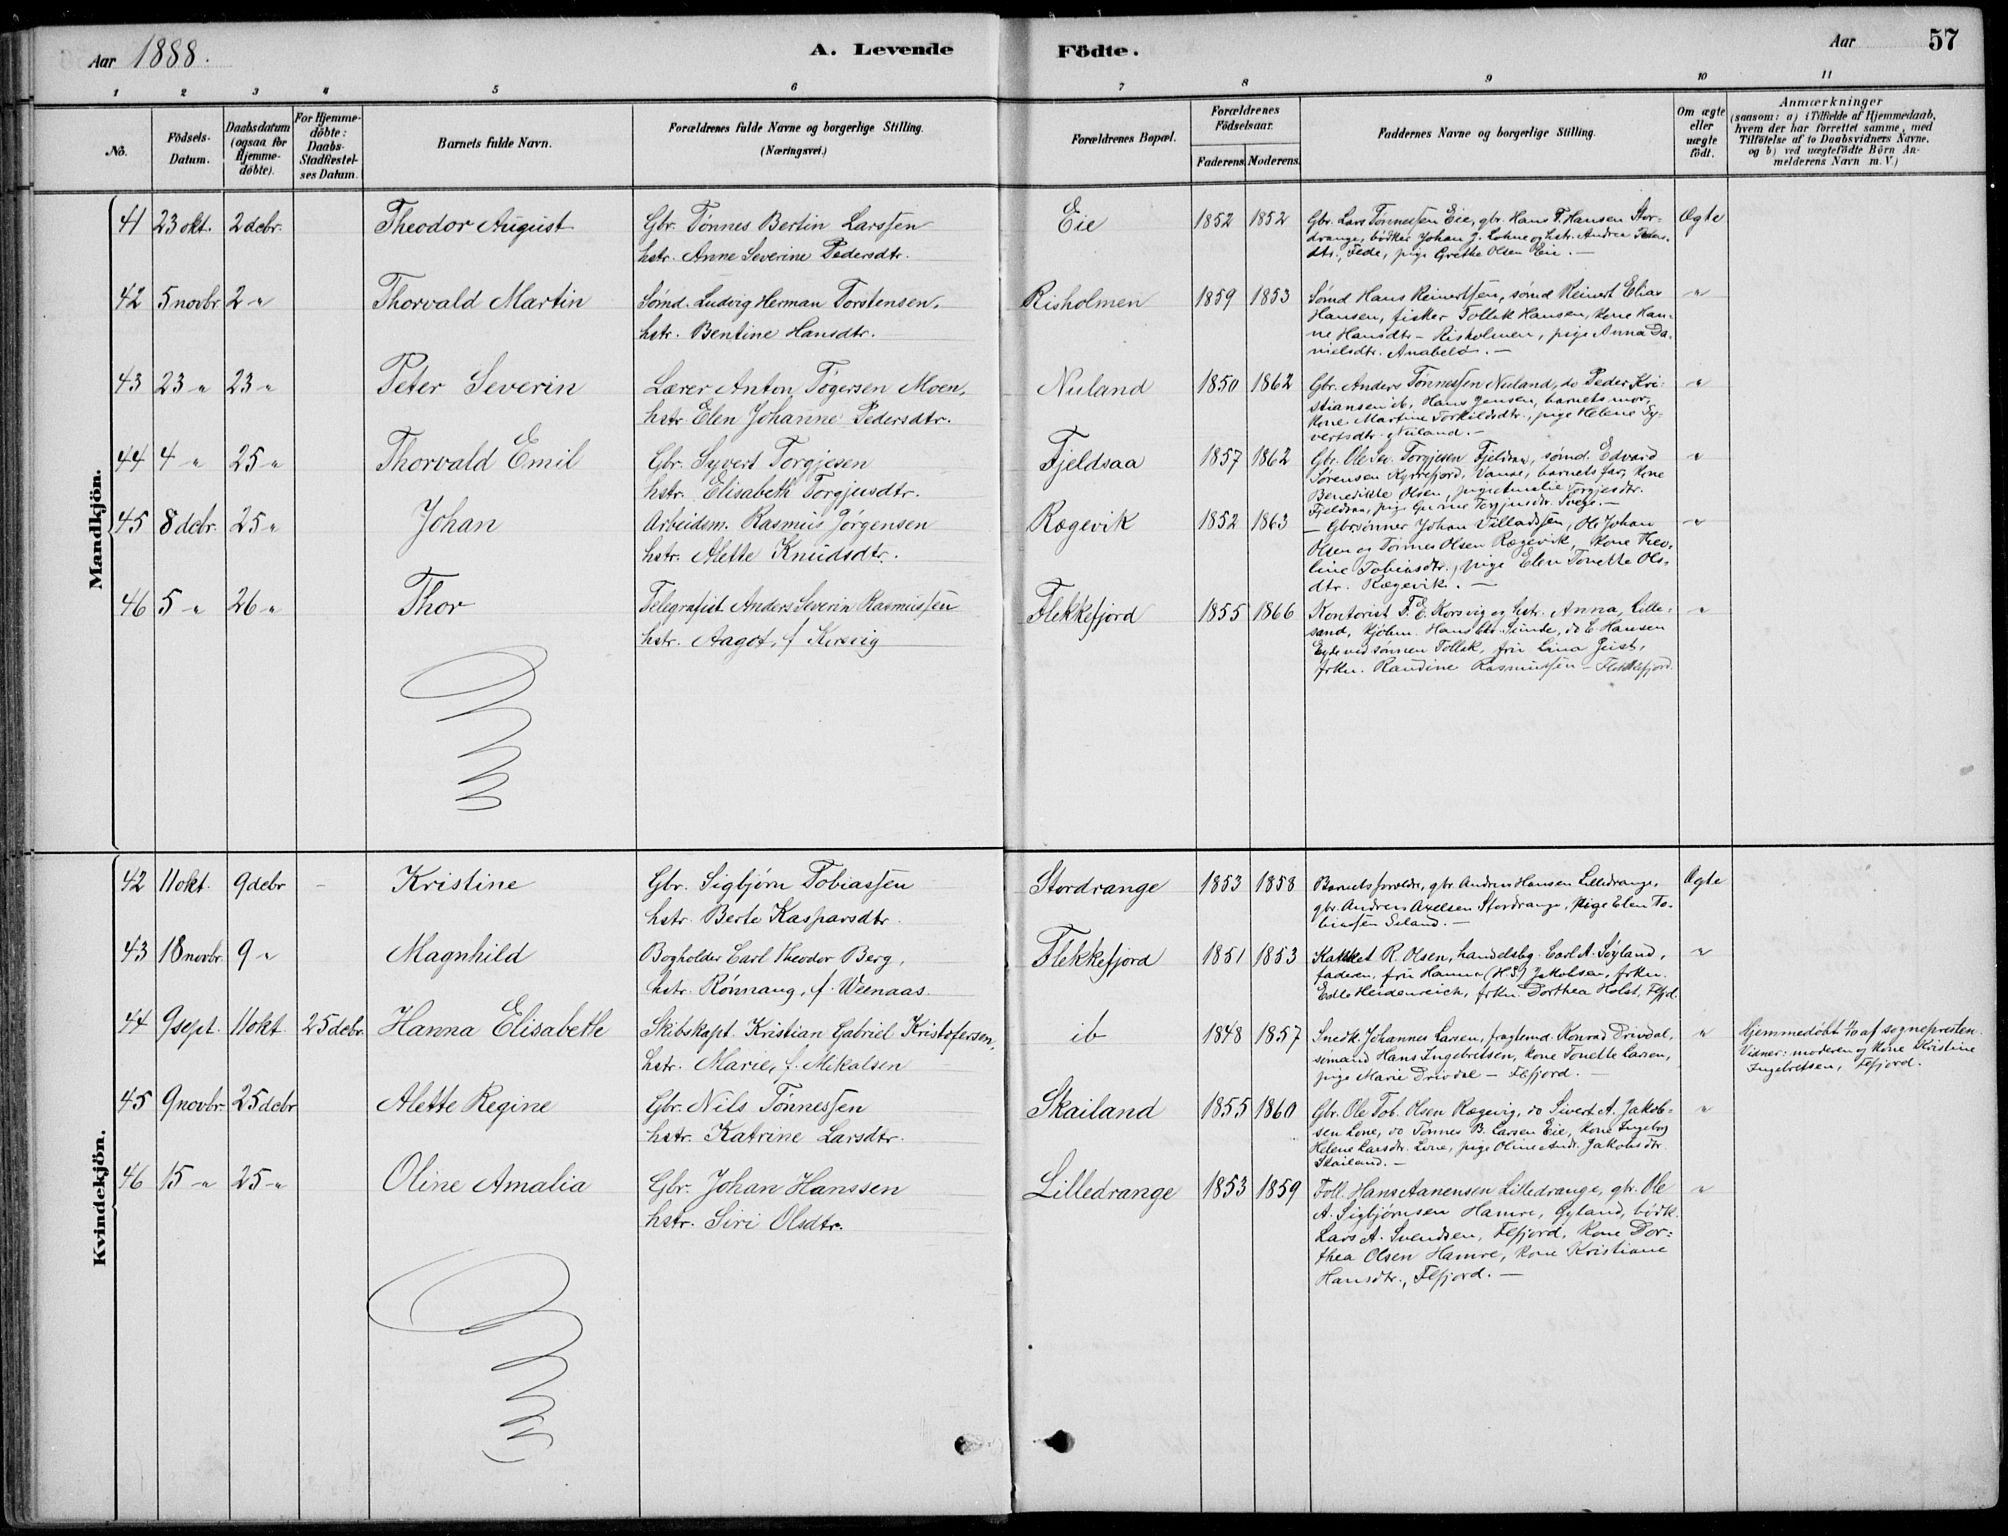 Aar 1888.
A. Levende Födte.
Aar
57
1 2 3 4 5 6 7 8 9 10 11
No.
Födsels-Datum.
Daabsdatum (ogsaa for Hjemme-döbte).
For Hjemme-döbte: Daabs-Stadfæstel-ses Datum.
Barnets fulde Navn.
Forældrenes fulde Navne og borgerlige Stilling.
(Næringsvei.)
Forældrenes Bopæl.
Forældrenes Födselsaar.
Faderens. Moderens.
Faddernes Navne og borgerlige Stilling.
Om ægte eller uægte födt.
Anmærkninger
(saasom: a) i Tilfælde af Hjemmedaab,
hvem der har forrettet samme, med
Tilföielse af to Daabsvidners Navne,
og b) ved uægtefödte Börn An-
melderens Navn m. V.)
Mandkjön.
41 23 okt. 2 debr. Theodor August Gbr. Tønnes Bertin Larssen Eie 1852 1852 Gbr. Lars Tønnessen Eie, gbr. Hans T. Hansen Stor- Ægte
hstr. Anne Severine Pedersdtr. drange, bødker Johan J. Lohne og hstr. Andrea Peders-
dtr., Fede, pige Grethe Olsen Eie. —
42 5 novbr 2 " Thorvald Martin Sømd. Ludvig Herman Torstensen, Risholmen 1859 1853 Sømd Hans Reinertsen, sømd Reinert Elias "
hstr. Bentine Hansdtr. Hansen, fisker Tollek Hansen, kone Han-
ne Hansdtr - Risholmen, pige Anna Da-
nielsdtr. Anabelø. —
43 23 " 23 " Peter Severin Lærer Anton Tøgersen Moen, Nuland 1850 1862 Gbr. Anders Tønnessen Nuland, do Peder Kri- "
hstr. Elen Johanne Pedersdtr. stiansen ib, Hans Jensen, barnets mor,
kone Martine Torkildsdtr., pige Helene Sy-
vertsdtr. Nuland. —
44 4 " 25 " Thorvald Emil Gbr. Syvert Torgjesen Fjeldsaa 1857 1862 Gbr. Ole Torgjesen Fjeldsaa, sømd. Edvard "
hstr. Elisabeth Torgjusdtr. Sørensen Kjørrefjord, Vanse, barnets far, kone
Benedikte Olsen, Torgjesdtr.
Fjeldsaa, pige Torgjusdtr.
45 8 debr. 25 " Johan Arbeidsm. Rasmus Jørgensen Rægevik 1852 1863 — Gbrsønner Johan Villadssen, Ole Johan "
hstr. Alette Knudsdtr. Olsen og Tønnes Olsen Rægevik, kone Theo-
line Tobiasdtr., pige Elen Tonette Ols-
dtr. Rægevik. —
46 5 " 26 " Thor Telegrafist Anders Severin Rasmussen Flekkefjord 1855 1866 Kontorist F. E. Korsvig og hstr. Anna, Lille- "
hstr. Aagot, f. Korsvig sand, kjøbm. Hans Chr. Sunde, do C. Hansen
Eyde ved sønnen Tollek, fru Lina Geist,
frkn. Randine Rasmussen - Flekkefjord.
Kvindekjön.
42 11 okt. 9 debr - Kristine Gbr. Sigbjørn Tobiassen Stordrange 1853 1858 Barnets forældre, gbr. Andreas Hansen Lilledrange, Ægte
hstr. Berte Kasparsdtr. gbr. Andreas Axelsen Stordrange, pige Elen To-
biassen Eeland. —
43 18 novbr. 9 " Magnhild Bogholder Carl Theodor Berg, Flekkefjord 1851 1853 Kateket R. Olsen, handelsbg. Carl A. Søyland, "
hstr. Rønnaug, f. Weenaas. faderen, fru Hanna (H. S.) Jakobsen, frkn.
Edle Heidenreich, frkn. Dorthea Holst, Flfjd.
44 9 sept. 11 okt 25 debr. Hanna Elisabeth Skibskapt. Kristian Gabriel Kristofersen, ib 1848 1857 Snedk. Johannes Larsen, fragtemd. Konrad Drivdal, " Hjemmedøbt af sognepresten.
hstr. Marie, f. Mikalsen sømand Hans Ingebretsen, kone Tonette Larsen, Vidner: moderen og kone Kristine
pige Marie Drivdal - Flfjord. — Ingebretsen, Flfjord.
45 9 novbr 25 debr Alette Regine Gbr. Nils Tønnessen Skailand 1855 1860 Gbr. Ole Tob. Olsen Rægevig, do Sivert A. Jakob- "
hstr. Katrine Larsdtr. sen Lone, do Tønnes B. Larsen Eie, kone Ingeborg
Helene Larsdtr. Lone, pige Oline Andr. Jakobsdtr.
Skailand. —
46 15 " 25 " Oline Amalia Gbr. Johan Hanssen Lilledrange 1853 1859 Foll. Hans Aanensen Lilledrange, gbr. Ole "
hstr. Siri Olsdtr. A. Sigbjørnsen Hamre, Gyland, bødk.
Lars A. Svendsen, Flfjord, kone Dor-
thea Olsen Hamre, kone Kristiane
Hansdtr., Flfjord. —